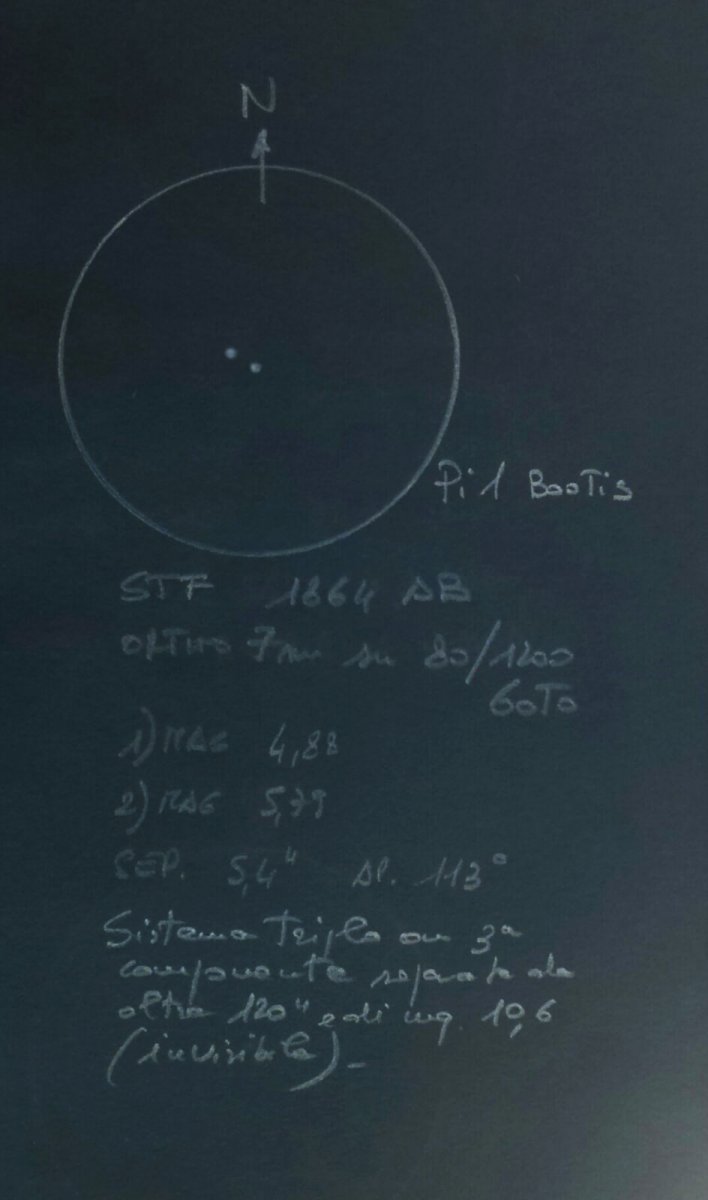 N
Pi 1 BOOTIS
STF 1864 AB
7mm su 80/1200
GOTO
1) MAG 4,88
2) MAG 5,79
SEP. 5,4" AP. 113°
Sistema Triplo con 3ª
componente separata da
oltre 120" e di mg. 10,6
(invisibile)-